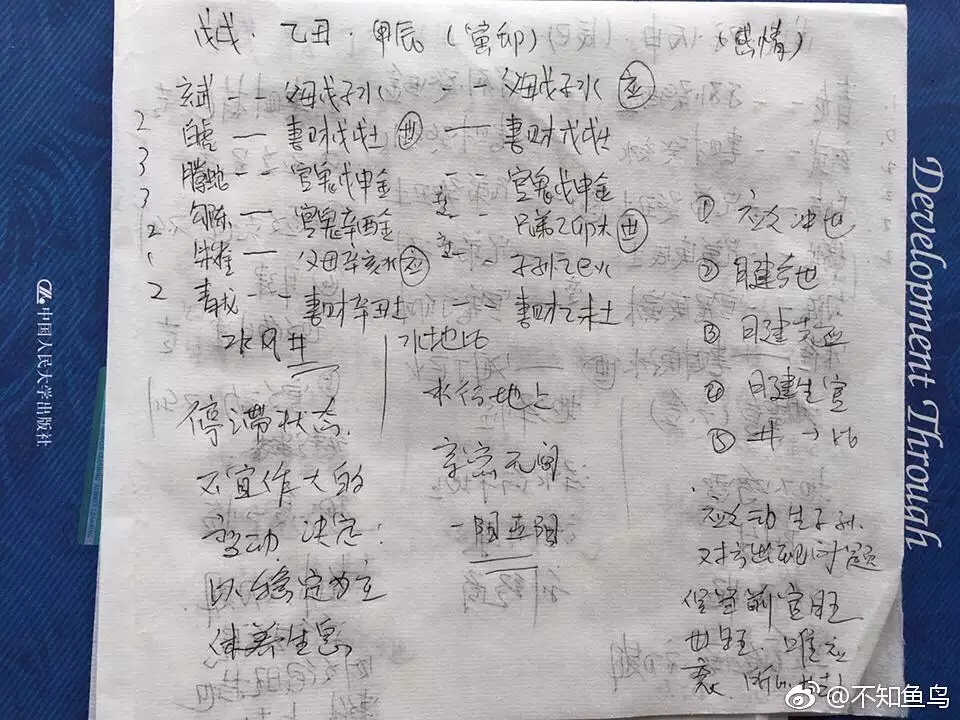 戊戌·乙丑·甲辰（寅卯）（感情）
玄武 -- 父母戊子水 -- 父母戊子水 应
2 白虎 — 妻财戊戌土 世 — 妻财戊戌土
3 腾蛇 -- 官鬼戊申金 -- 官鬼戊申金
3 勾陈 — 官鬼辛酉金 -- 兄弟乙卯木 世
2 朱雀 — 父母辛亥水 应 -- 子孙乙巳火
1
2 青龙 -- 妻财辛丑土 妻财乙未土
水风井
水地比
停滞状态.
不宜作大的
变动 决定:
以稳定为主
休养生息
水行地上
亲密无间
① 应爻冲世
② 日建合世
③ 日建克应
④ 日建生官
⑤ 井→比
应爻动生子孙.
世旺. 唯应
衰.
Development Through
中国人民大学出版社
@不知鱼鸟